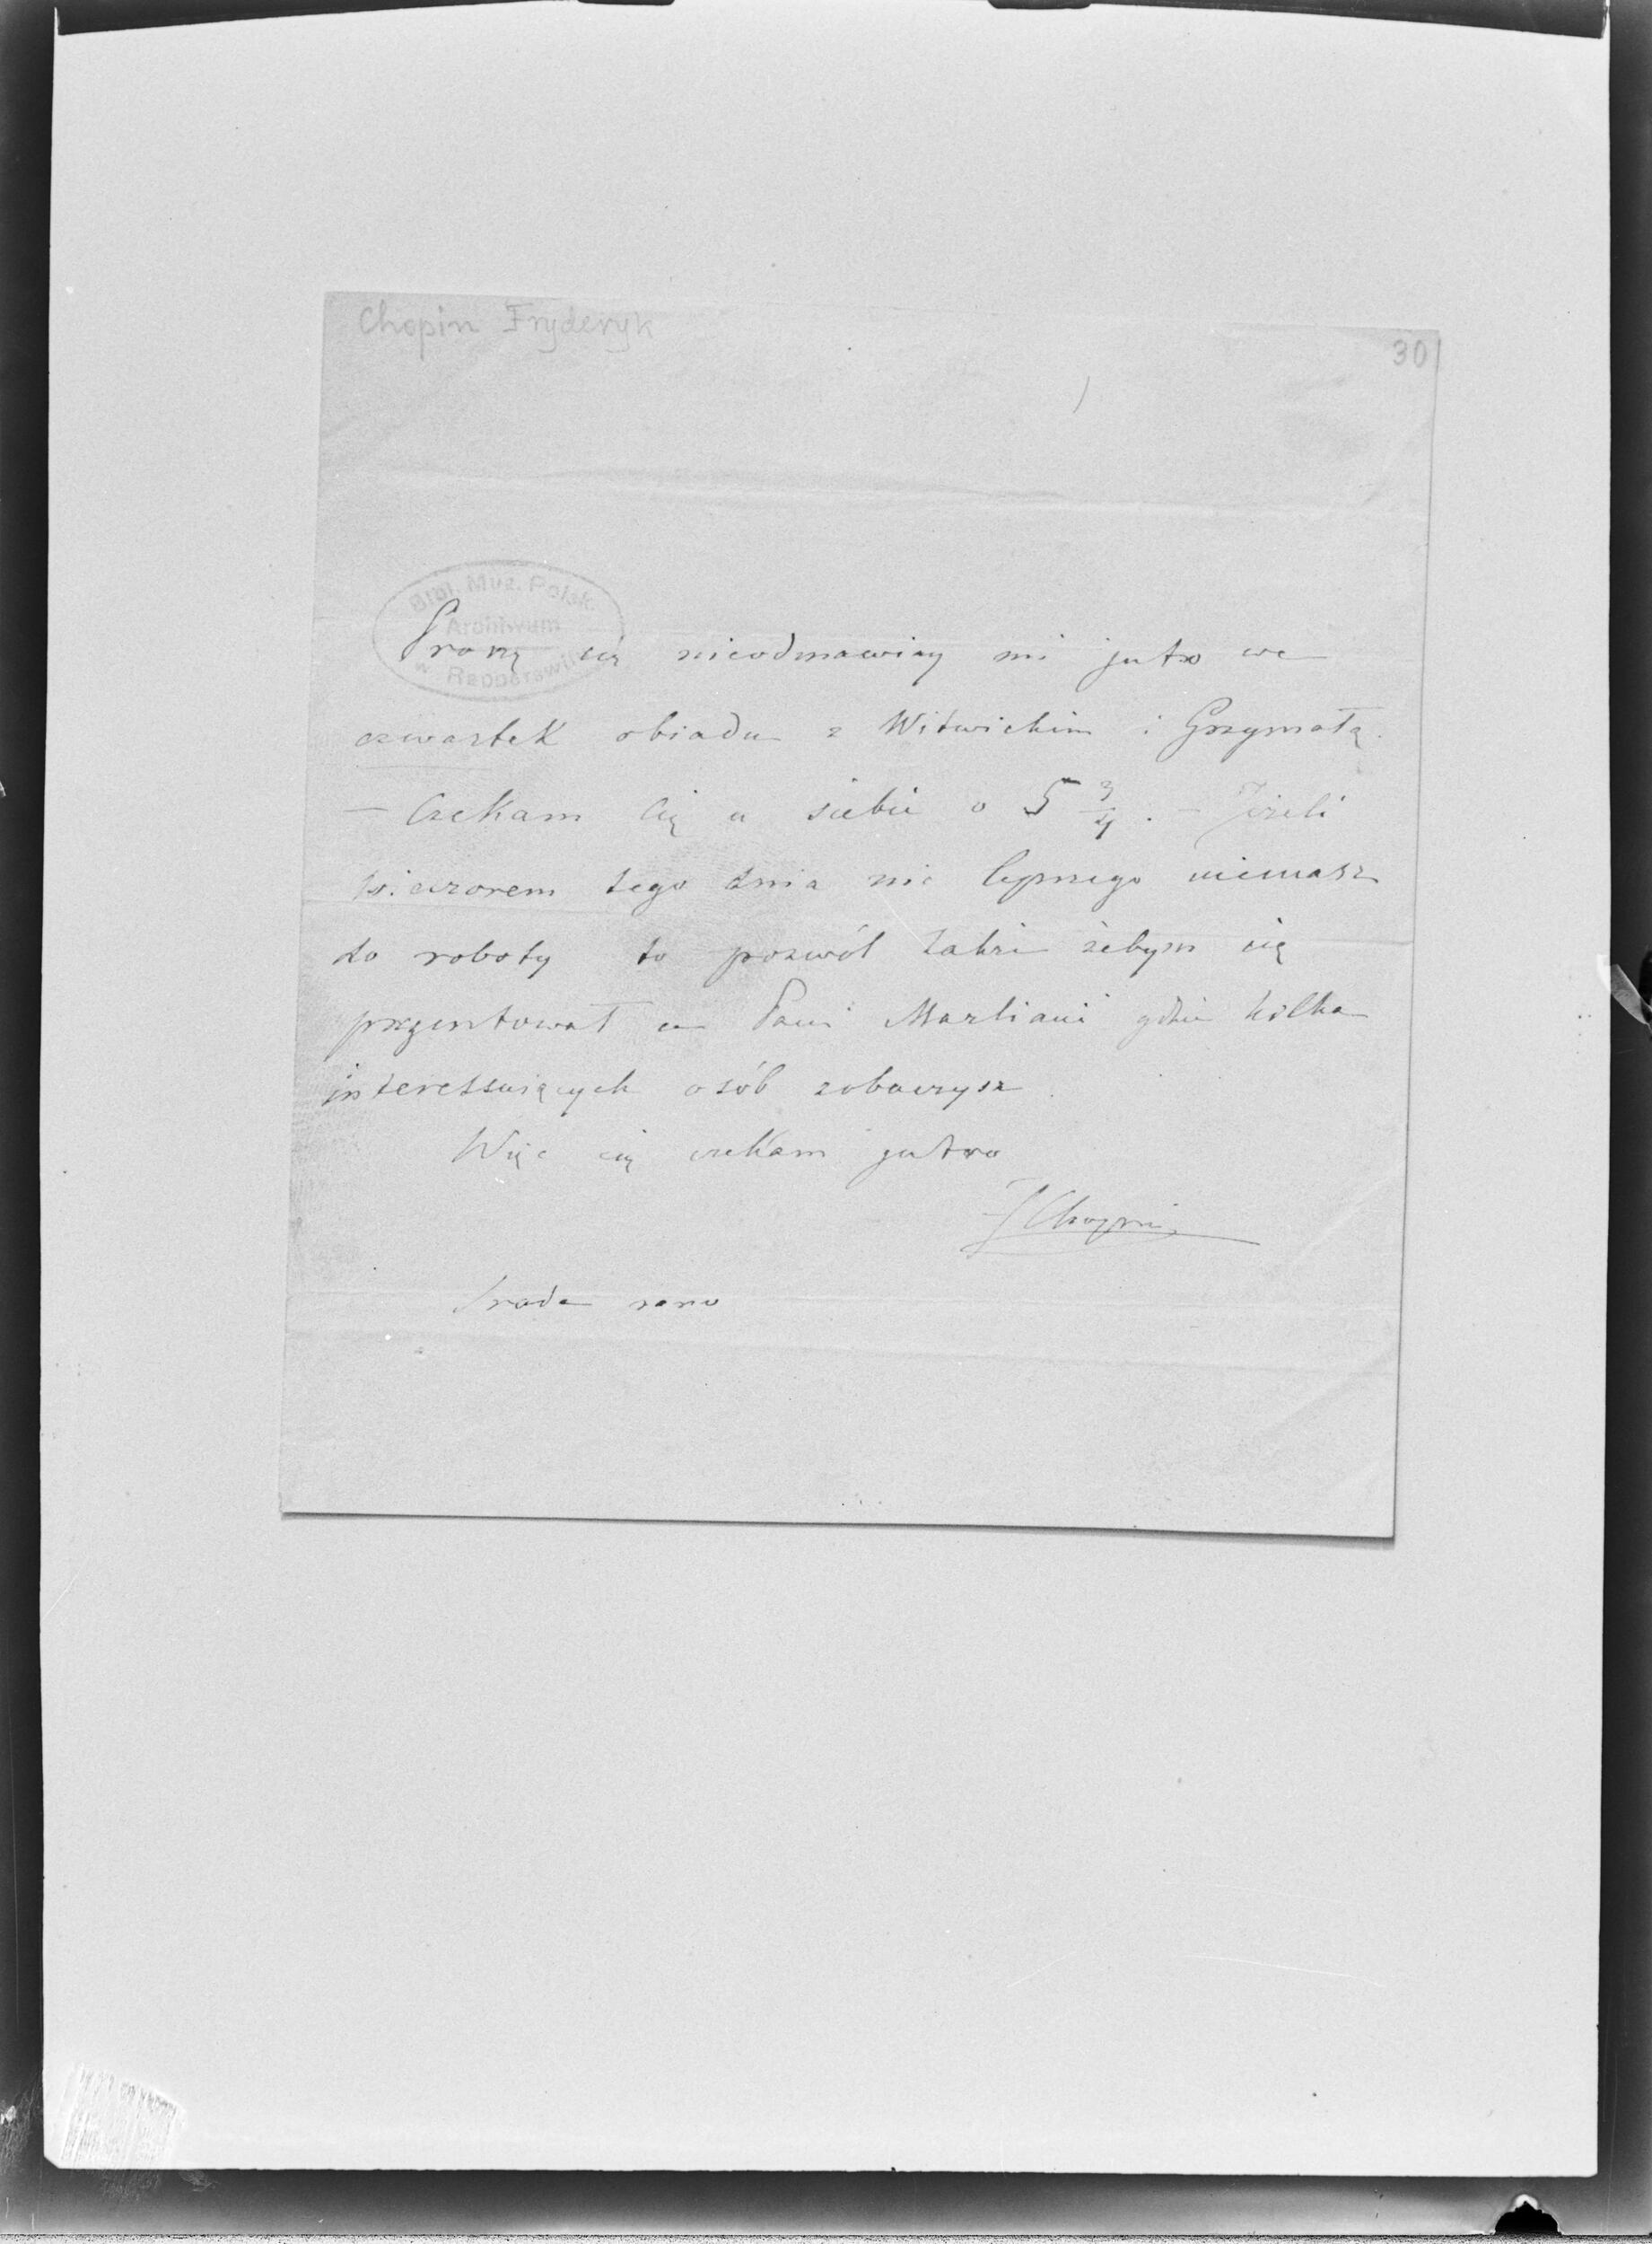 Chopin Fryderyk
30
Bibl. Muz. Polsk.
Archiwum
w Rapperswilu
Proszę cię nieodmawiay mi jutro we
czwartek obiadu z Witwickim i Grzymałą.
— Czekam Cię u siebie o 5 3/4. — Jeżeli
wieczorem tego dnia nic lepszego niemasz
do roboty to pozwól także żebym cię
prezentował u Pani Marliani gdzie kilka
interessuiących osób zobaczysz.
Więc cię czekam jutro
FChopin
Sroda rano